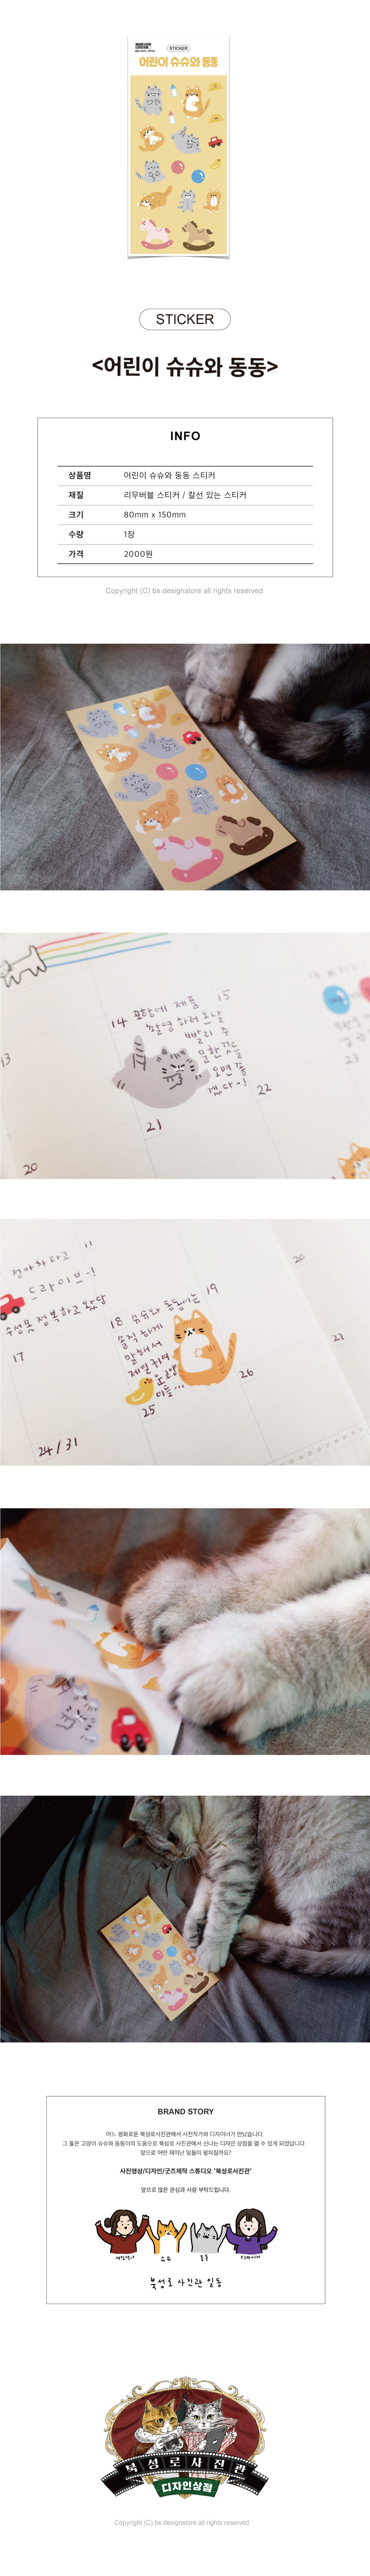 북성로사진관
디자인상점
STICKER
어린이 슈슈와 동동
STICKER
<어린이 슈슈와 동동>
INFO
상품명 어린이 슈슈와 동동 스티커
재질 리무버블 스티커 / 칼선 있는 스티커
크기 80mm x 150mm
수량 1장
가격 2000원
Copyright (C) bs.designstore all rights reserved
13
14 포항에 제품
15
촬영 하러 온 날
빨리
22
21
20
11
타고
드라이브~!
수성못 정복하고 왔당
17
18 슈슈와 동동이는
19
솔직하게
말해서
제일 귀여
20
21
25
26
24/31
BRAND STORY
어느 평화로운 북성로사진관에서 사진작가와 디자이너가 만났습니다.
그 둘은 고양이 슈슈와 동동이의 도움으로 북성로 사진관에서 신나는 디자인 상점을 열 수 있게 되었답니다.
앞으로 어떤 재미난 일들이 펼쳐질까요?
사진영상/디자인/굿즈제작 스튜디오 '북성로사진관'
앞으로 많은 관심과 사랑 부탁드립니다.
사진작가 슈슈 동동 디자이너
북성로 사진관 일동
북성로사진관
디자인상점
Copyright (C) bs.designstore all rights reserved